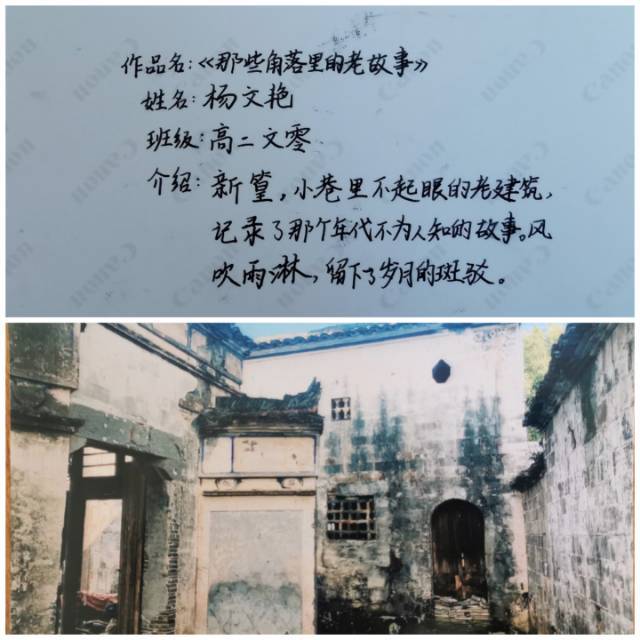 作品名:《那些角落里的老故事》
姓名:杨文艳
班级:高二文零
介绍:新篁,小巷里不起眼的老建筑,
记录了那个年代不为人知的故事。风
吹雨淋,留下了岁月的斑驳。